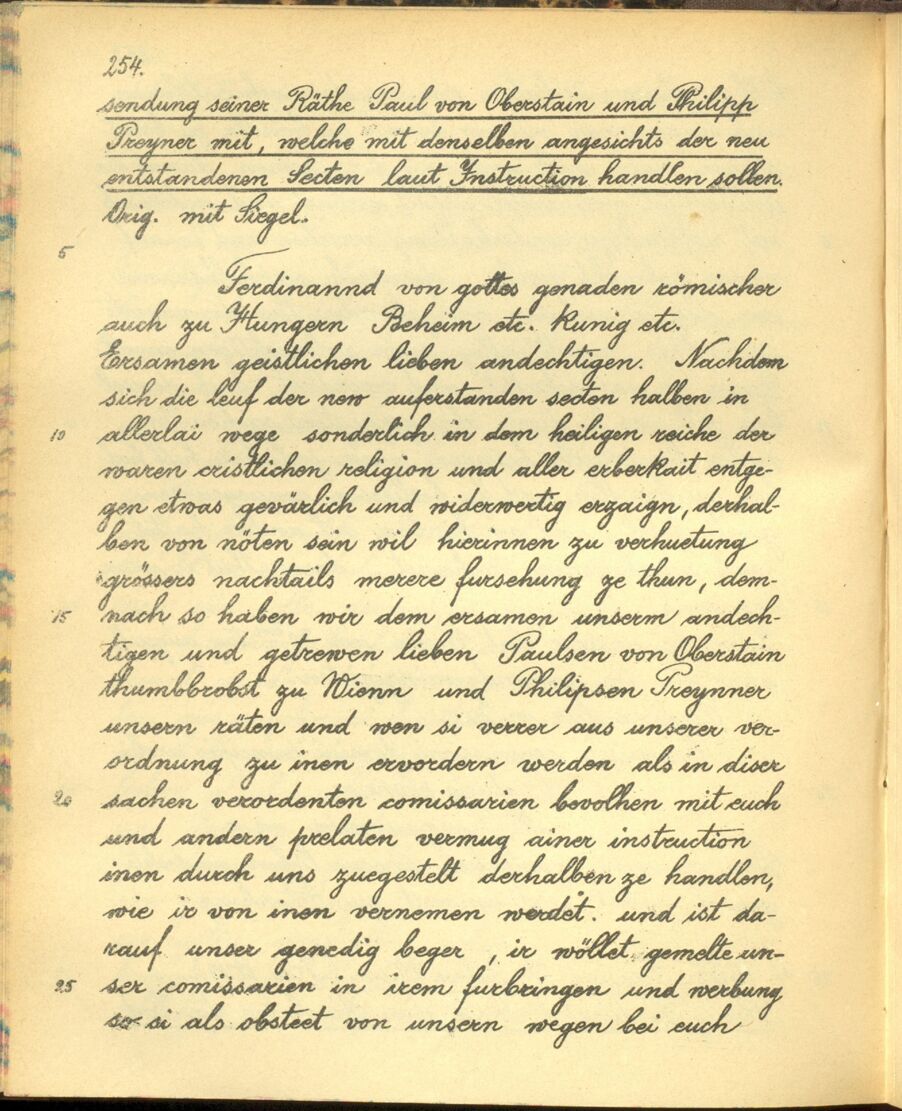 254.
sendung seiner Räthe Paul von Oberstain und Philipp
Preyner mit, welche mit denselben angesichts der neu
entstandenen Secten laut Instruction handlen sollen.
Orig. mit Siegel.
5
Ferdinannd von gottes genaden römischer
auch zu Hungern Beheim etc. kunig etc.
Ersamen geistlichen lieben andechtigen. Nachdem
sich die leuf der new auferstanden secten halben in
10 allerlai wege sonderlich in dem heiligen reiche der
waren cristlichen religion und aller erberkait entge-
gen etwas gevärlich und widerwertig erzaign, derhal-
ben von nöten sein wil hierinnen zu verhuetung
grössers nachtails merere fursehung ze thun, dem-
15 nach so haben wir dem ersamen unserm andech-
tigen und getrewen lieben Paulsen von Oberstain
thumbbrobst zu Wienn und Philipsen Preynner
unsern räten und wen si verrer aus unserer ver-
ordnung zu inen ervordern werden als in diser
20 sachen verordenten comissarien bevolhen mit euch
und andern prelaten vermug ainer instruction
inen durch uns zuegestelt derhalben ze handlen,
wie ir von inen vernemen werdet. und ist da-
rauf unser genedig beger, ir wöllet gemelte un-
25 ser comissarien in irem furbringen und werbung
so si als obsteet von unsern wegen bei euch